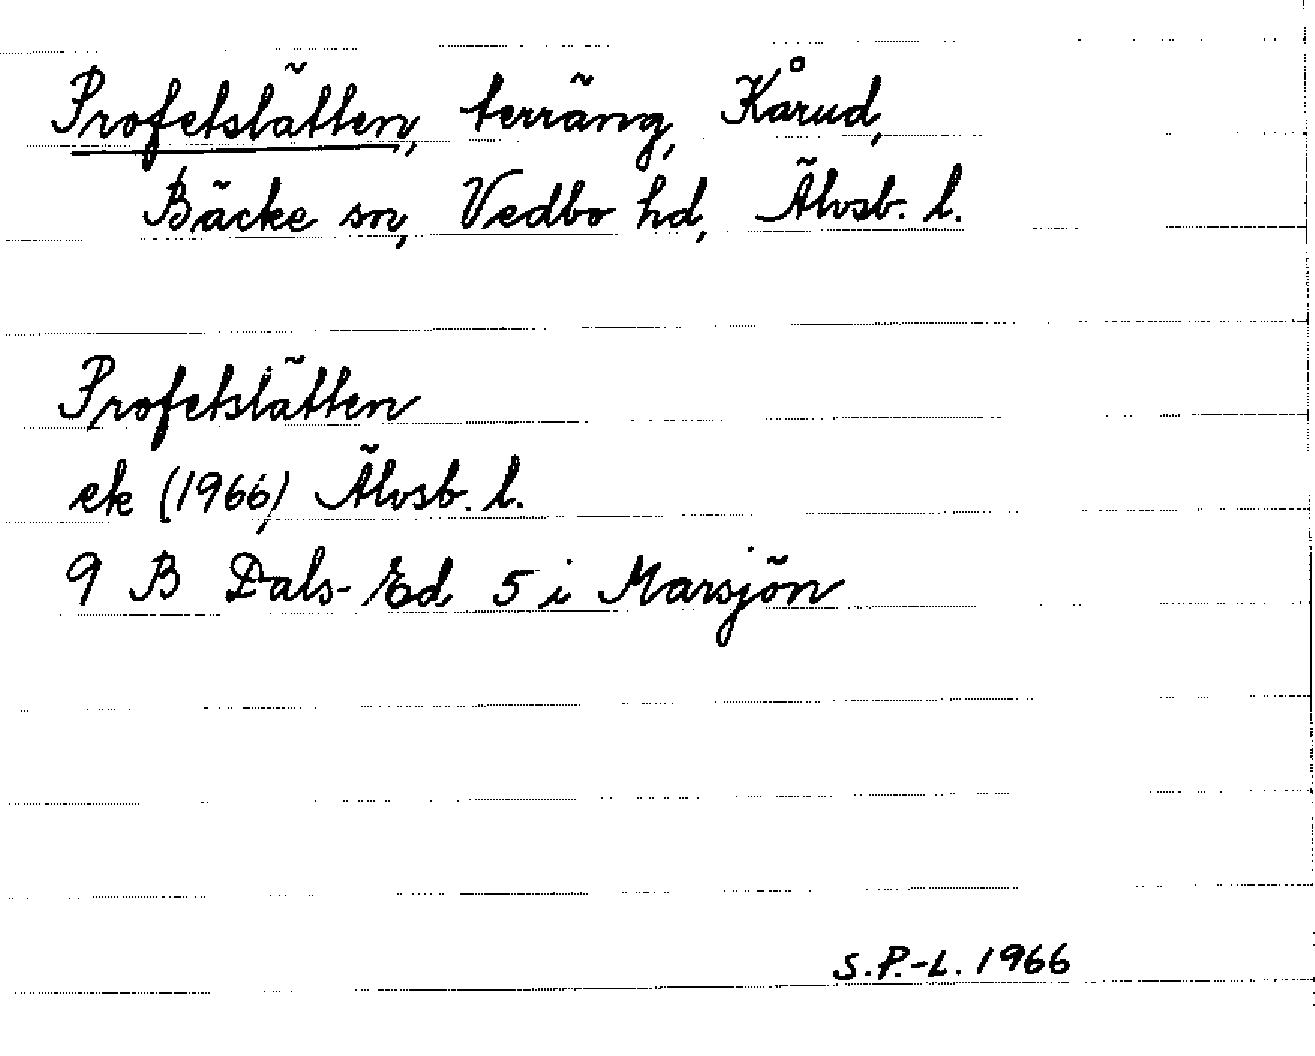 Profetslätten, terräng, Kårud,
Bäcke sn, Vedbo hd, Älvsb. l.
Profetslätten
ek (1966) Älvsb. l.
9 B Dals-Ed 5 i Marsjön
S.P.-L. 1966